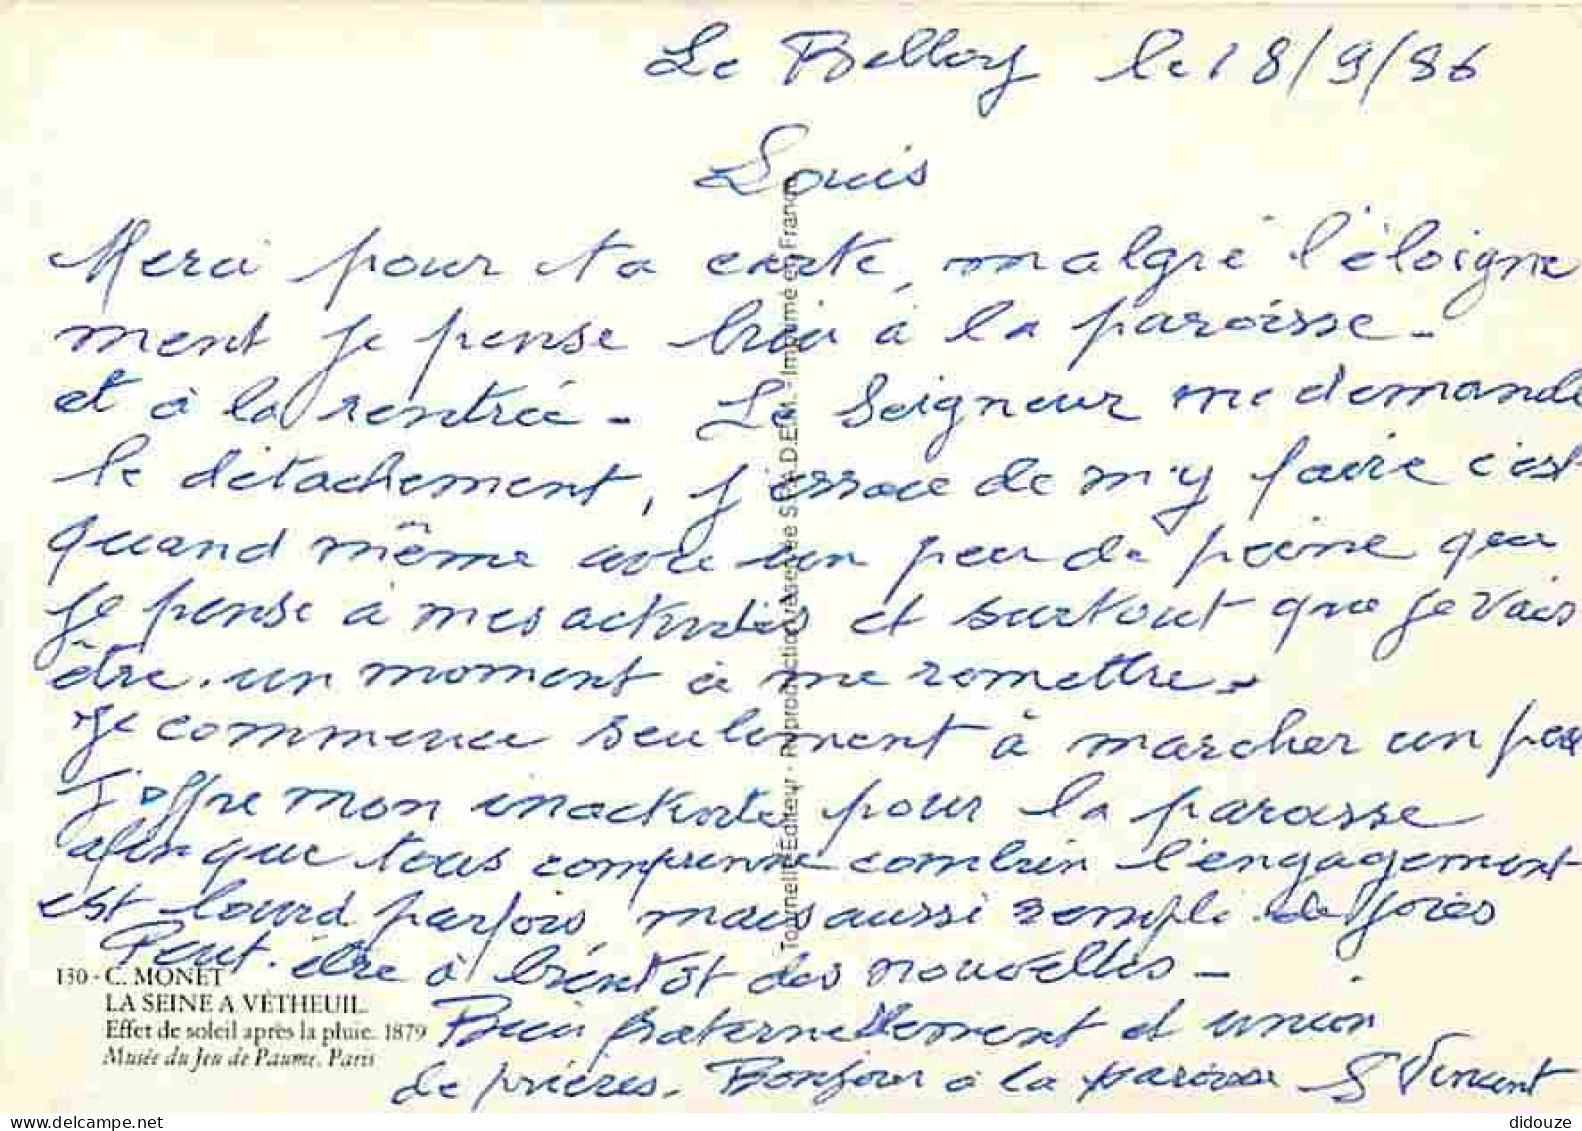 Le Belloy le 18/9/86
Louis
Merci pour ta carte, malgré l'éloigne
ment je pense bien à la paroisse -
et à la rentrée - Le Seigneur me demande
le détachement, j'essaie de m'y faire c'est
quand même avec un peu de peine que
je pense à mes activités et surtout que je vais
être un moment à me remettre.
Je commence seulement à marcher un peu
J'offre mon inactivité pour la paroisse
afin que tous comprenne combien l'engagement
est lourd parfois mais aussi rempli de joies
Peut-être à bientôt des nouvelles -
Bien fraternellement et union
de prières. Bonjour à la paroisse St Vincent
130 - C. MONET
LA SEINE A VÉTHEUIL
Effet de soleil après la pluie. 1879
Musée du Jeu de Paume. Paris
Tournelle Éditeur - Reproduction réservée S.P.A.D.E.M. - Imprimé en France
didouze